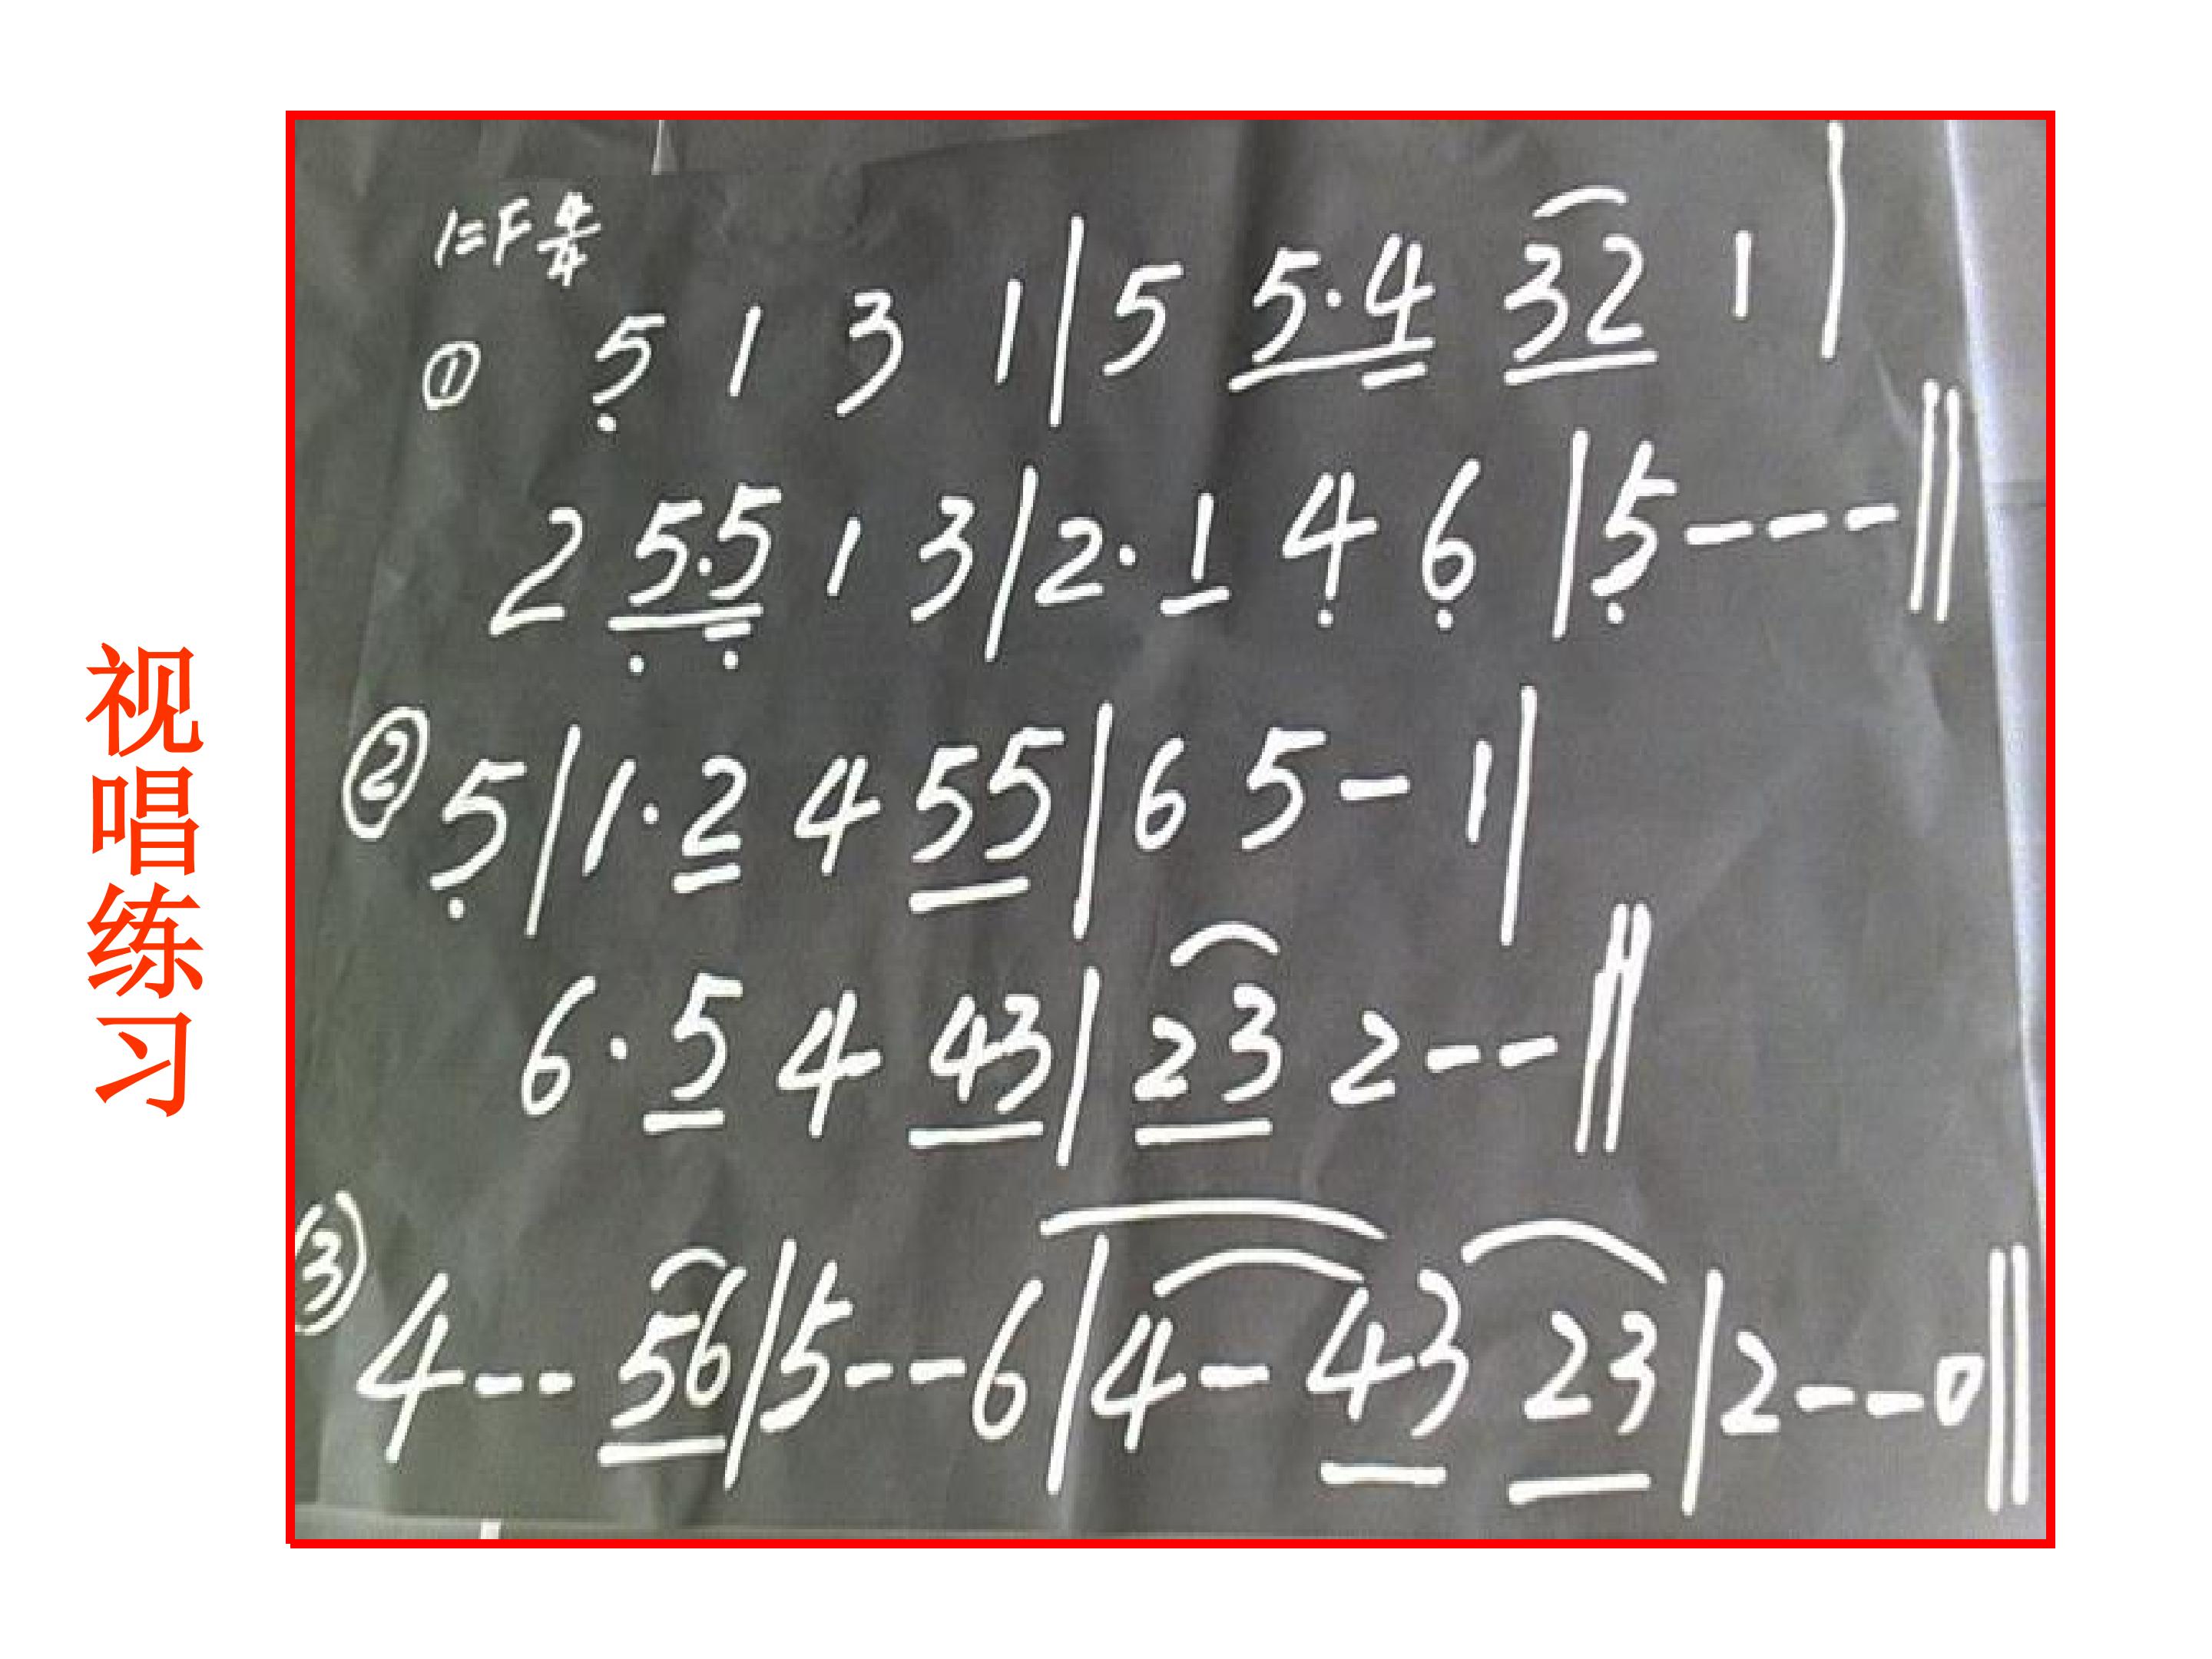 视唱练习
1=F 4/4
① 5̣ 1 3 1 | 5 5·4 3 2 1 |
2 5̣·5̣ 1 3 | 2· 1 4̣ 6̣ | 5̣ - - - ‖
② 5̣ | 1· 2 4 5 5 | 6 5 - 1 |
6· 5 4 4 3 | 2 3 2 - - ‖
(3) 4 - - 5 6 | 5 - - 6 | 4 - 4 3 2 3 | 2 - - 0 ‖